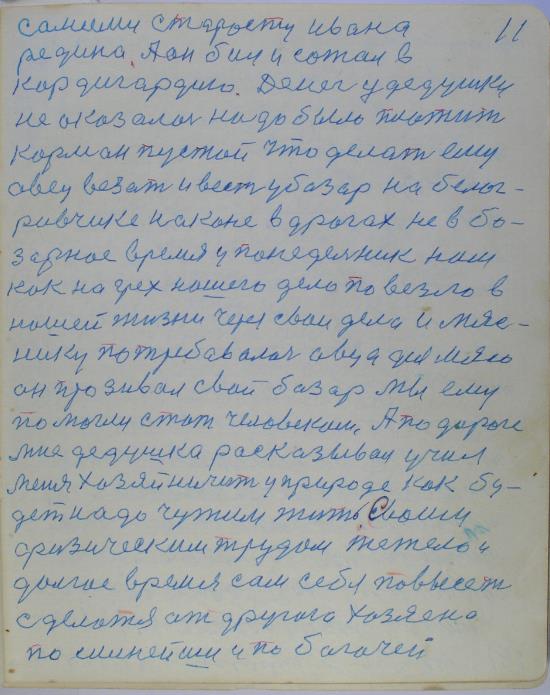 11
самими старосту ивана
редина. Аон был и сожал в
кордигардию. Денег у дедушки
не оказалоч надо было платит
корман пустой что делат ему
овец везат и вест у базар на белог-
ровчике наконе в дрогах не в ба-
зарное время у понедельник нам
как на грех нашего дело повезло в
нашей жизни чере свои дела и мяс-
нику потребавалоч овца для мяса
он прозивал свой базар мы ему
помогли стат человеком. А по дороге
мне дедушка расказывал учил
меня хозяйничит у природе как бу-
дет надо чужим жить, Своим
физическим трудом тежело и
долгое время сам себя повысет
сделатя от другога хозяена
по синейши и по багачей